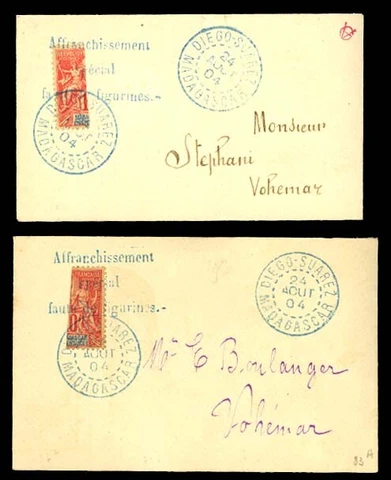 Affranchissement
spécial
faute de figurines.-
DIEGO-SUAREZ
24
AOUT
04
MADAGASCAR
DIEGO-SUAREZ
04
MADAGASCAR
Monsieur
Stephani
Vohemar
Affranchissement
spécial
faute de figurines.-
DIEGO-SUAREZ
24
AOUT
04
MADAGASCAR
DIEGO-SUAREZ
AOUT
04
MADAGASCAR
Mr E Boulanger
Vohémar
83 A